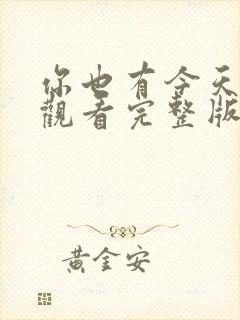 你也有今天
觀看完整版
黃金安